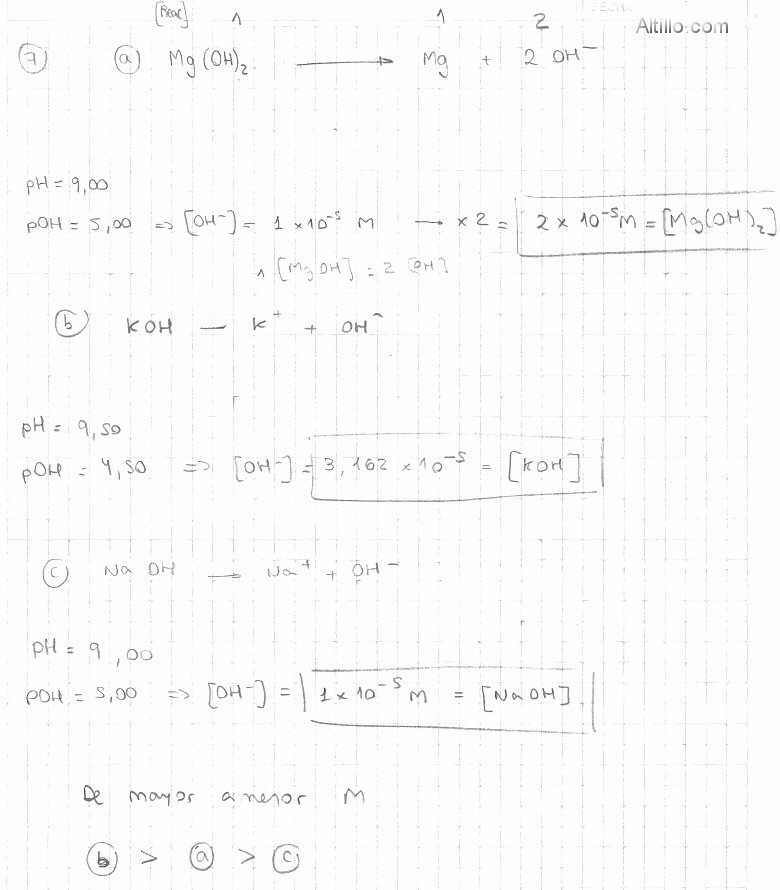 Altillo.com
[Reac] 1 1 2
7 a Mg(OH)₂ ⟶ Mg + 2 OH⁻
pH = 9,00
pOH = 5,00 => [OH⁻] = 1 × 10⁻⁵ M → × 2 = 2 × 10⁻⁵ M = [Mg(OH)₂]
1 [MgOH] = 2 [OH]
b KOH — K⁺ + OH⁻
pH = 9,50
pOH = 4,50 => [OH⁻] = 3,162 × 10⁻⁵ = [KOH]
c NaOH → Na⁺ + OH⁻
pH = 9,00
pOH = 5,00 => [OH⁻] = 1 × 10⁻⁵ M = [NaOH]
De mayor a menor M
b > a > c